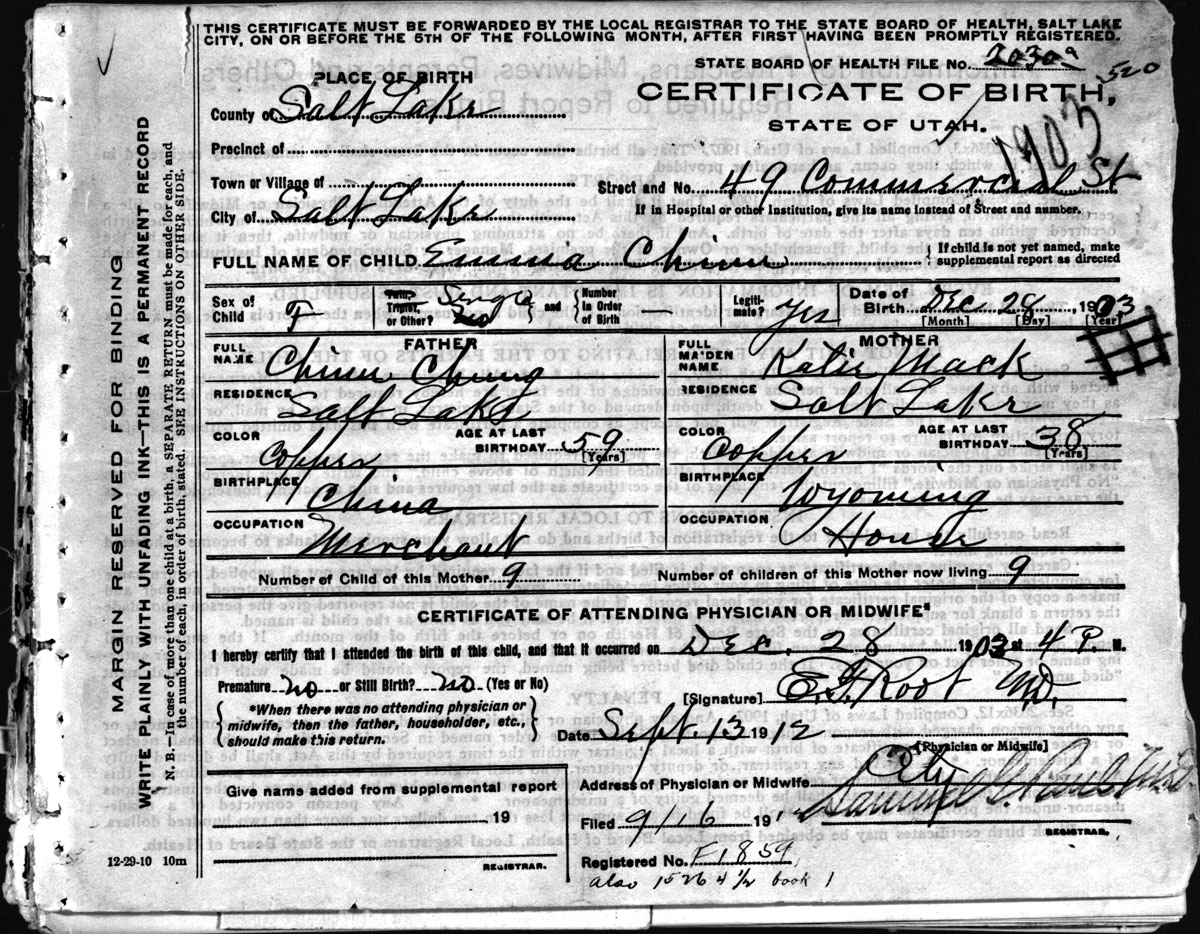 THIS CERTIFICATE MUST BE FORWARDED BY THE LOCAL REGISTRAR TO THE STATE BOARD OF HEALTH, SALT LAKE
CITY, ON OR BEFORE THE 5TH OF THE FOLLOWING MONTH, AFTER FIRST HAVING BEEN PROMPTLY REGISTERED.
STATE BOARD OF HEALTH FILE NO. 2030a
520
PLACE OF BIRTH
CERTIFICATE OF BIRTH,
County of Salt Lake
STATE OF UTAH.
1903
Precinct of
Town or Village of
Street and No. 49 Commercial St
City of Salt Lake
If in Hospital or other Institution, give its name instead of Street and number.
FULL NAME OF CHILD Emma Chinn
If child is not yet named, make
supplemental report as directed
Sex of Child F
Twin, Triplet, or Other? Single
and Number in Order of Birth
Legitimate? Yes
Date of Birth Dec 28, 1903
[Month] [Day] [Year]
FATHER
MOTHER
FULL NAME Chinn Chung
FULL MAIDEN NAME Katie Mack
RESIDENCE Salt Lake
RESIDENCE Salt Lake
COLOR Copper
AGE AT LAST BIRTHDAY 59 [Years]
COLOR Copper
AGE AT LAST BIRTHDAY 38 [Years]
BIRTHPLACE China
BIRTHPLACE Wyoming
OCCUPATION Merchant
OCCUPATION House
Number of Child of this Mother 9
Number of children of this Mother now living 9
CERTIFICATE OF ATTENDING PHYSICIAN OR MIDWIFE*
I hereby certify that I attended the birth of this child, and that it occurred on Dec. 28 1903 at 4 P. M.
Premature? no or Still Birth? no (Yes or No)
[Signature] E. F. Root M.D.
*When there was no attending physician or
midwife, then the father, householder, etc.,
should make this return.
Date Sept. 13 1912
[Physician or Midwife]
Give name added from supplemental report
Address of Physician or Midwife City
19
Filed 9/16 191
REGISTRAR.
REGISTRAR.
Registered No. F1859
also 1526 4 1/2 book 1
12-29-10 10m
MARGIN RESERVED FOR BINDING
WRITE PLAINLY WITH UNFADING INK—THIS IS A PERMANENT RECORD
N. B.—In case of more than one child at a birth, a SEPARATE RETURN must be made for each, and
the number of each, in order of birth, stated. SEE INSTRUCTIONS ON OTHER SIDE.